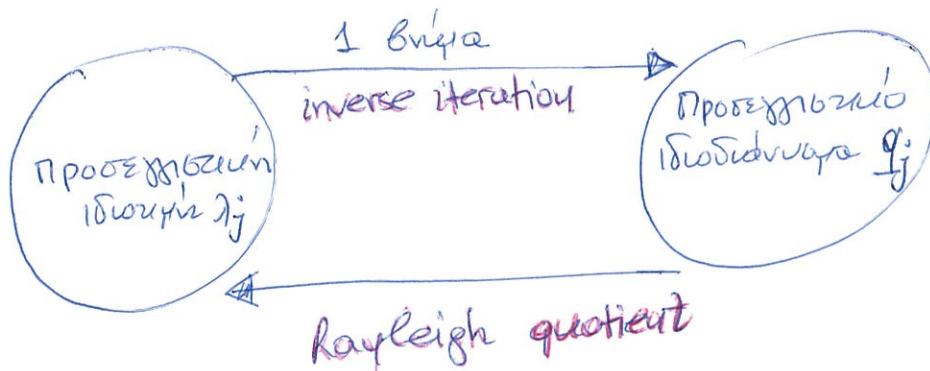 1 βήμα
inverse iteration
Προσεγγιστική
ιδιοτιμή λj
Προσεγγιστικό
ιδιοδιάνυσμα qj
Rayleigh quotient